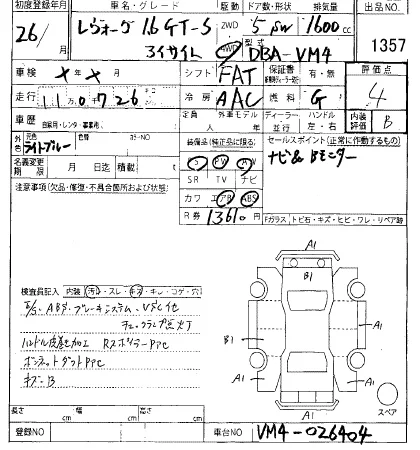 初度登録年月 車名・グレード 駆動 ドア数・形状 排気量 出品NO.
26/ レヴォーグ 1.6 GT-S 2WD 5 SW 1600cc
アイサイト 4WD 型式 DBA-VM4 1357
車検 x年x月 シフト FAT 保証書 有・無 評価点
走行 110,726 冷房 AAC 燃料 G 4
車歴 自家用・レンタ・事業者 定員 人 外車モデル 年 ディーラー 並行 ハンドル 左・右 内装評価 B
外色 元色 ライトブルー 色替 カラーNO 装備品(純正品に限る) セールスポイント(正常に作動するもの)
名義変更期限 月 日迄 積載 PS PW AW ナビ&Bモニター
SR TV ナビ
注意事項(欠品・修復・不具合個所および状態) カワ エアB ABS
R券 13610円 Fガラス トビ石・キズ・ヒビ・ワレ・リペア跡
A1
B1
検査員記入 内装(汚・スレ・キズ・キレ・コゲ・穴)
E/G、ABS、ブレーキシステム、VDC他
チェックランプ点灯
A1
B1
A1
ハンドル皮巻加工 RスポイラーPPC
ボンネットダクトPPC
キズB
A1
A1
スペア
長さ cm 幅 cm 高さ cm
登録NO 車台NO VM4-026404